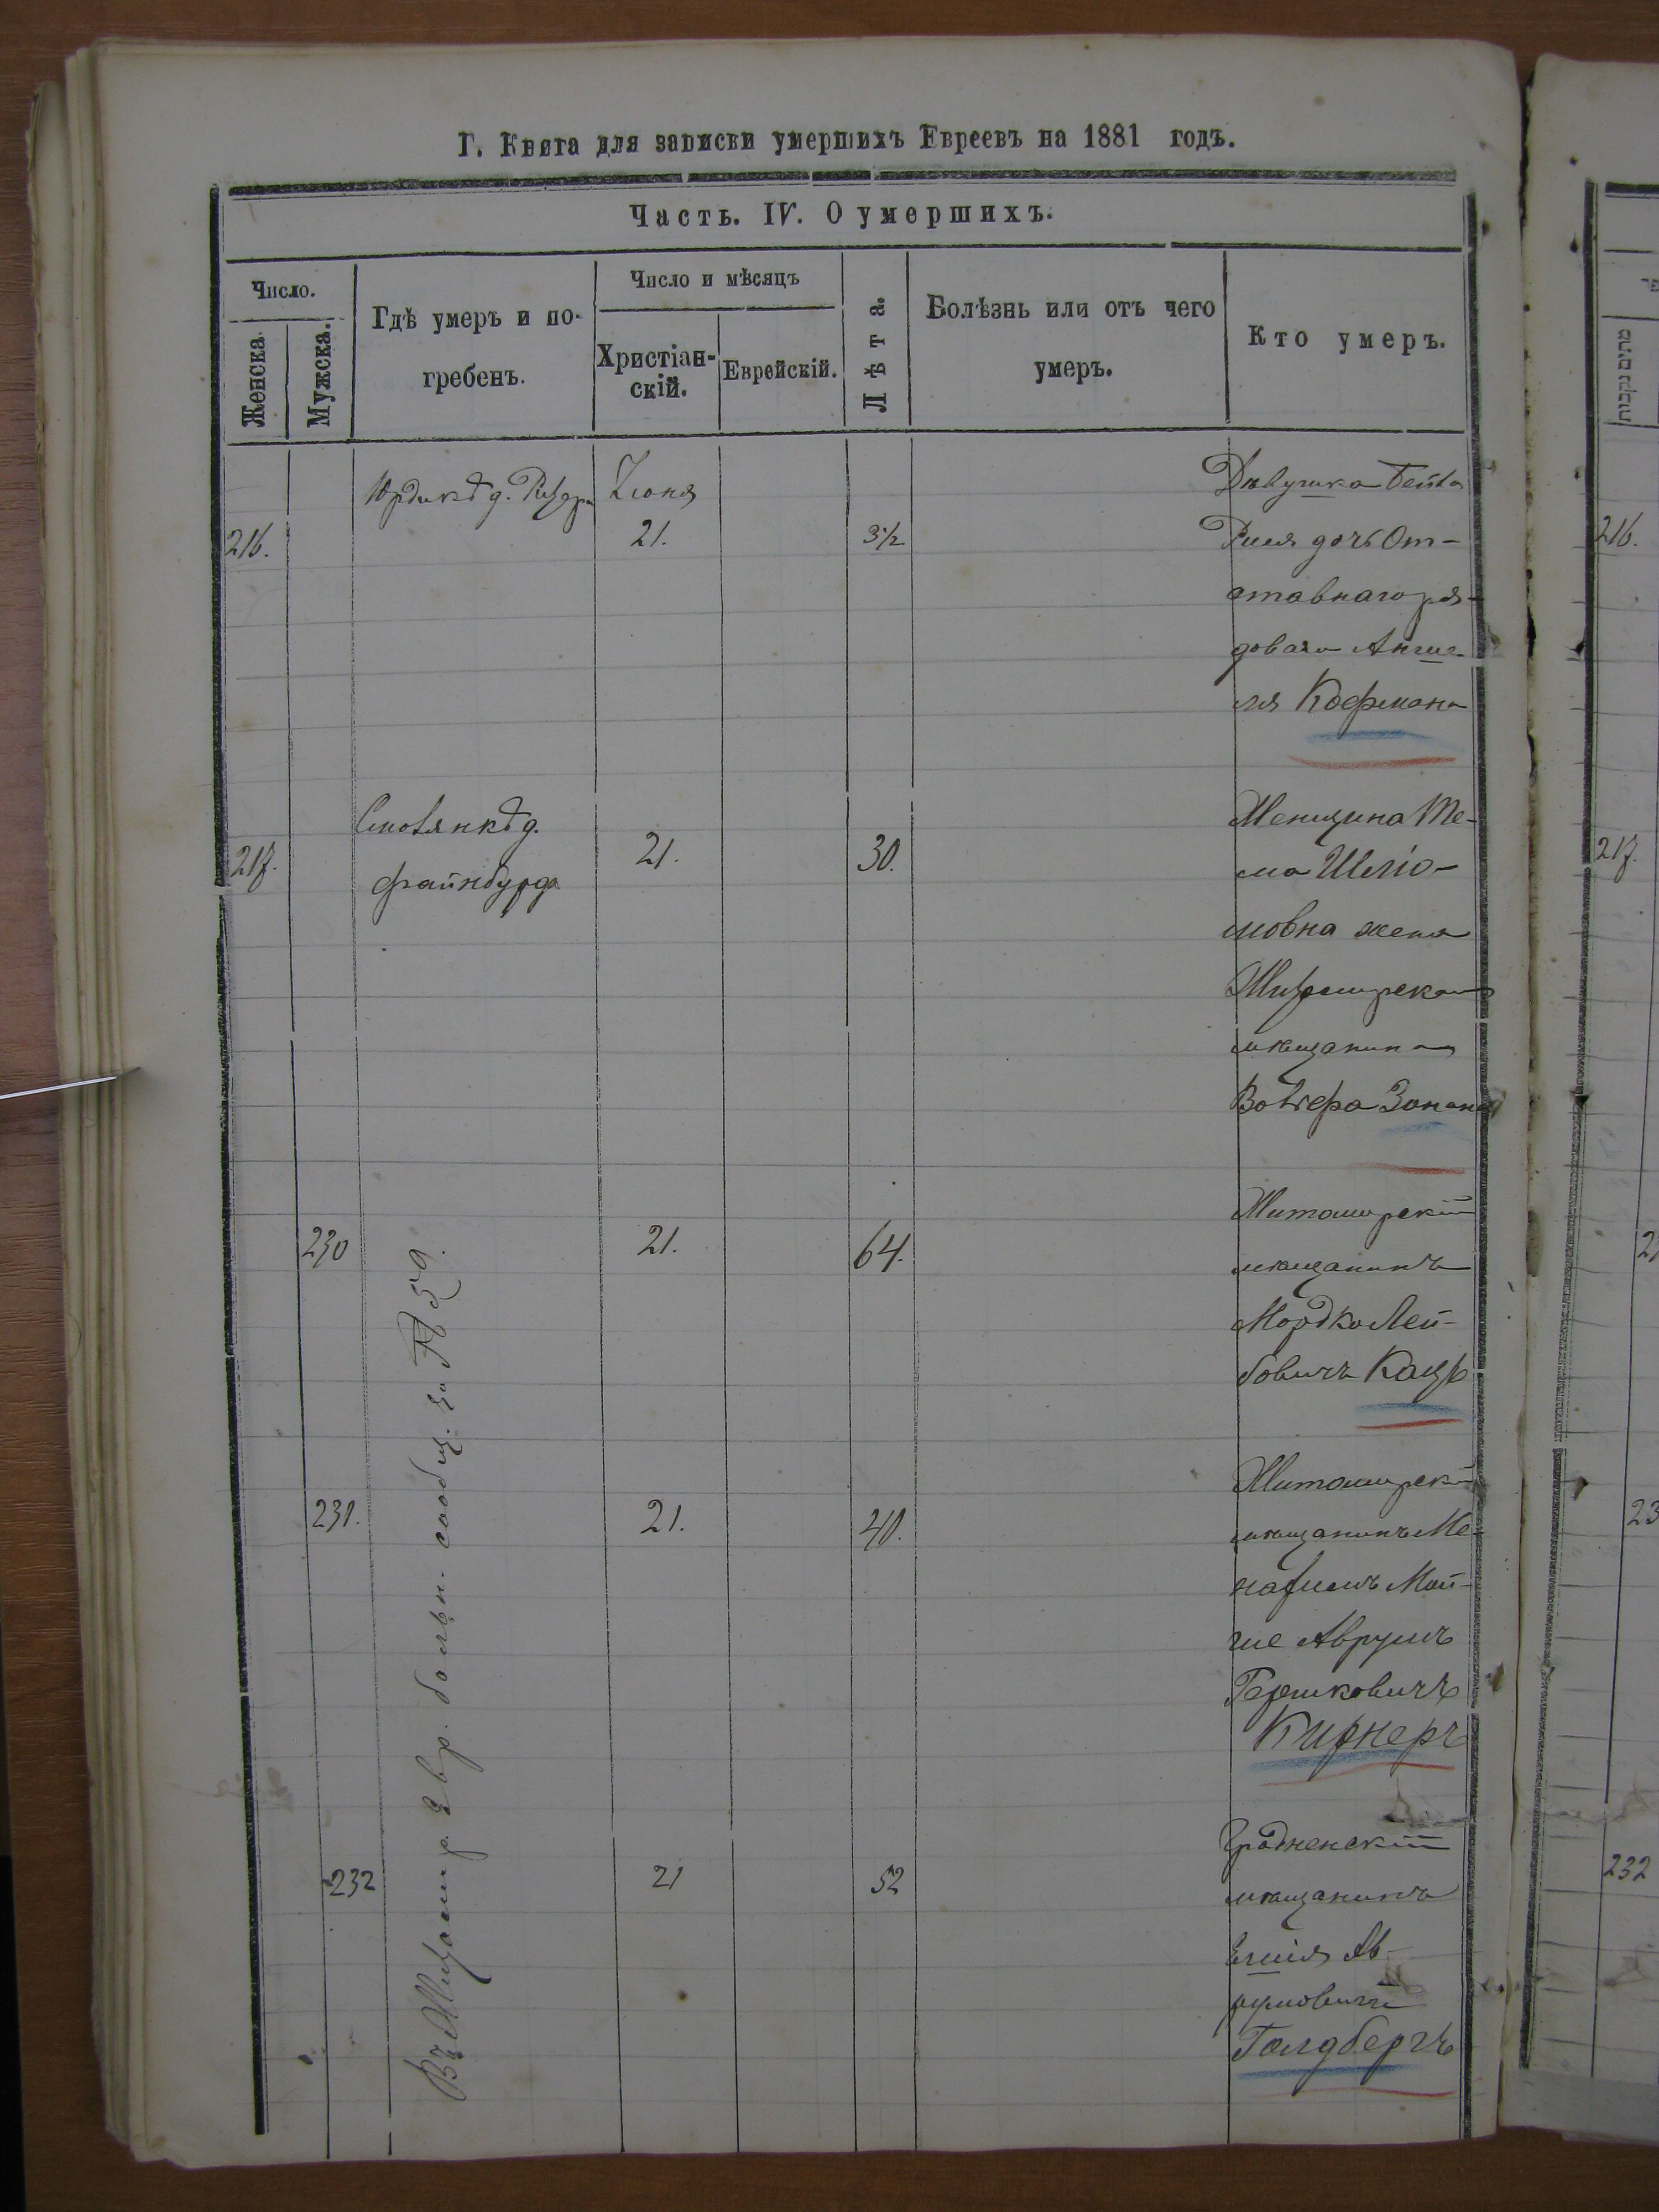 Г. Книга для записки умершихъ Евреевъ на 1881 годъ.
Часть. IV. О умершихъ.
Число.
Женска.
Мужска.
Гдѣ умеръ и по-
гребенъ.
Число и мѣсяцъ
Христіан-
скій.
Еврейскій.
Лѣта.
Болѣзнь или отъ чего
умеръ.
Кто умеръ.
216.
Юрдикѣ д.
Іюня
21.
3 1/2
Дѣвушка Бейла
дочь От-
ставнаго ря-
доваго Анше-
ля Кофмана
217.
Смолянкѣ д.
Файнбурда
21.
30.
Женщина Те-
ма Шліо-
мовна жена
Житомирскаго
мѣщанина
Вольфа Зонана
230
Въ Житомир. Евр. больн. сообщ. за № 59.
21.
64.
Житомирскій
мѣщанинъ
Мордко Лей-
бовичъ Кацъ
231.
21.
40.
Житомирскій
мѣщанинъ Ме-
Мой-
ше Аврумъ
Гершковичъ
Кирнеръ
232
21
52
Гродненскій
мѣщанинъ
Ешія Ав-
румовичъ
Голдбергъ
216.
217.
23
232